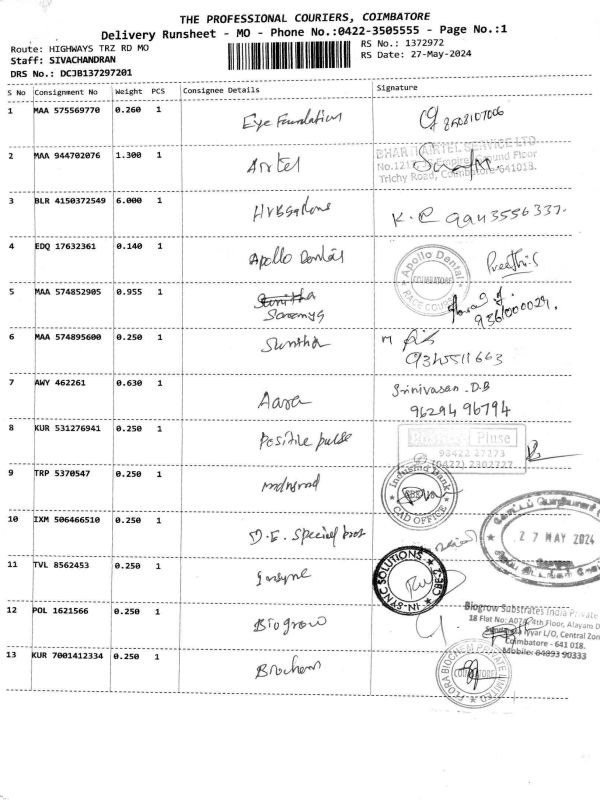 THE PROFESSIONAL COURIERS, COIMBATORE
Delivery Runsheet - MO - Phone No.:0422-3505555 - Page No.:1
Route: HIGHWAYS TRZ RD MO
RS No.: 1372972
Staff: SIVACHANDRAN
RS Date: 27-May-2024
DRS No.: DCJB137297201
S No Consignment No Weight PCS Consignee Details Signature
1 MAA 575569770 0.260 1 Eye Foundation
2 MAA 944702076 1.300 1 Airtel
BHARTI AIRTEL SERVICE LTD
Trichy Road, Coimbatore-641018.
3 BLR 4150372549 6.000 1
4 EDQ 17632361 0.140 1 Apollo Dental Preethi.S
Apollo Dental
COIMBATORE
RACE COURSE
5 MAA 574852905 0.955 1
9361000029.
6 MAA 574895600 0.250 1 Sunitha
7 AWY 462261 0.630 1 Srinivasan.D.B
96294 96794
8 KUR 531276941 0.250 1 Positive pulse
Positive Pluse
98422 27273
(0422) 2302727
9 TRP 5370547 0.250 1
Indusind Bank
CAD OFFICE
10 IXM 506466510 0.250 1
27 MAY 2024
11 TVL 8562453 0.250 1
IN-SYNC SOLUTIONS
CBE-2
12 POL 1621566 0.250 1 Biogrow
Biogrow Substrates India Private
18 Flat No: A074, 4th Floor, Alayam
Iyyar L/O, Central Zon
Coimbatore - 641 018.
Mobile: 84893 90333
13 KUR 7001412334 0.250 1 Biochem
FLORA BIOCHEM PRIVATE LIMITED
COIMBATORE